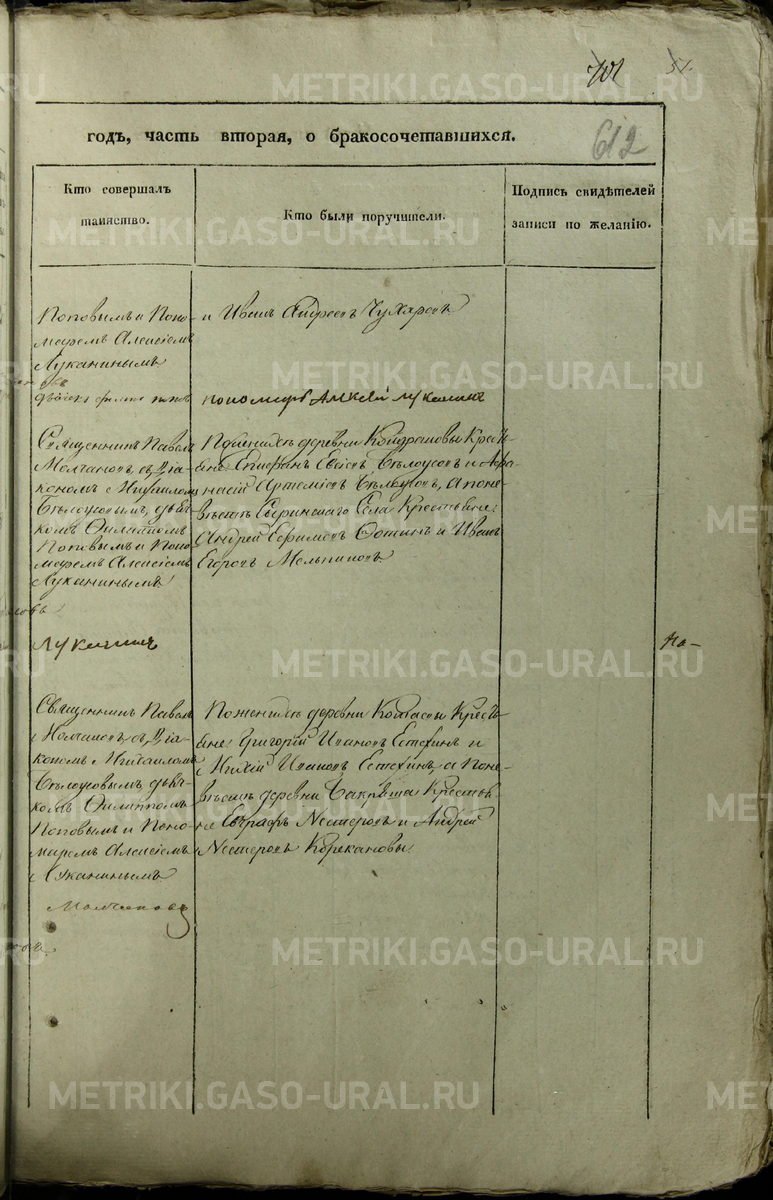 METRIKI.GASO-URAL.RU
701 51.
612
годъ, часть вторая, о бракосочетавшихся.
Кто совершалъ
таинство.
Кто были поручители.
Подпись свидѣтелей
записи по желанію.
Поповымъ и Поно-
маремъ Алексіемъ
Луканинымъ
и Иванъ Андреевъ Чухаревъ
пономарь Алексѣй Луканинъ
Священникъ Павелъ
Молчановъ, съ Діа-
кономъ Михаиломъ
Бѣлоусовымъ, дьяч-
комъ Филиппомъ
Поповымъ и Поно-
маремъ Алексіемъ
Луканинымъ
По женихѣ деревни Кондрашовы Кресть-
яне Епифанъ Бѣлоусовъ и Афа-
насій Артеміевъ Бѣлоусовъ, а по не-
вѣстѣ Села Крестьяне
Андрей Ефимовъ и Иванъ
Егоровъ Мельниковъ
Луканинъ
На-
Священникъ Павелъ
Молчановъ, съ Діа-
кономъ Михаиломъ
Бѣлоусовымъ, дьяч-
комъ Филиппомъ
Поповымъ и Поно-
маремъ Алексіемъ
Луканинымъ
По женихѣ деревни Кресть-
яне Григорій Ивановъ Естехинъ и
Ивановъ Естехинъ, а по не-
вѣстѣ деревни Крестья-
не Евграфъ Нестеровъ и Андрей
Нестеровъ
Молчановъ